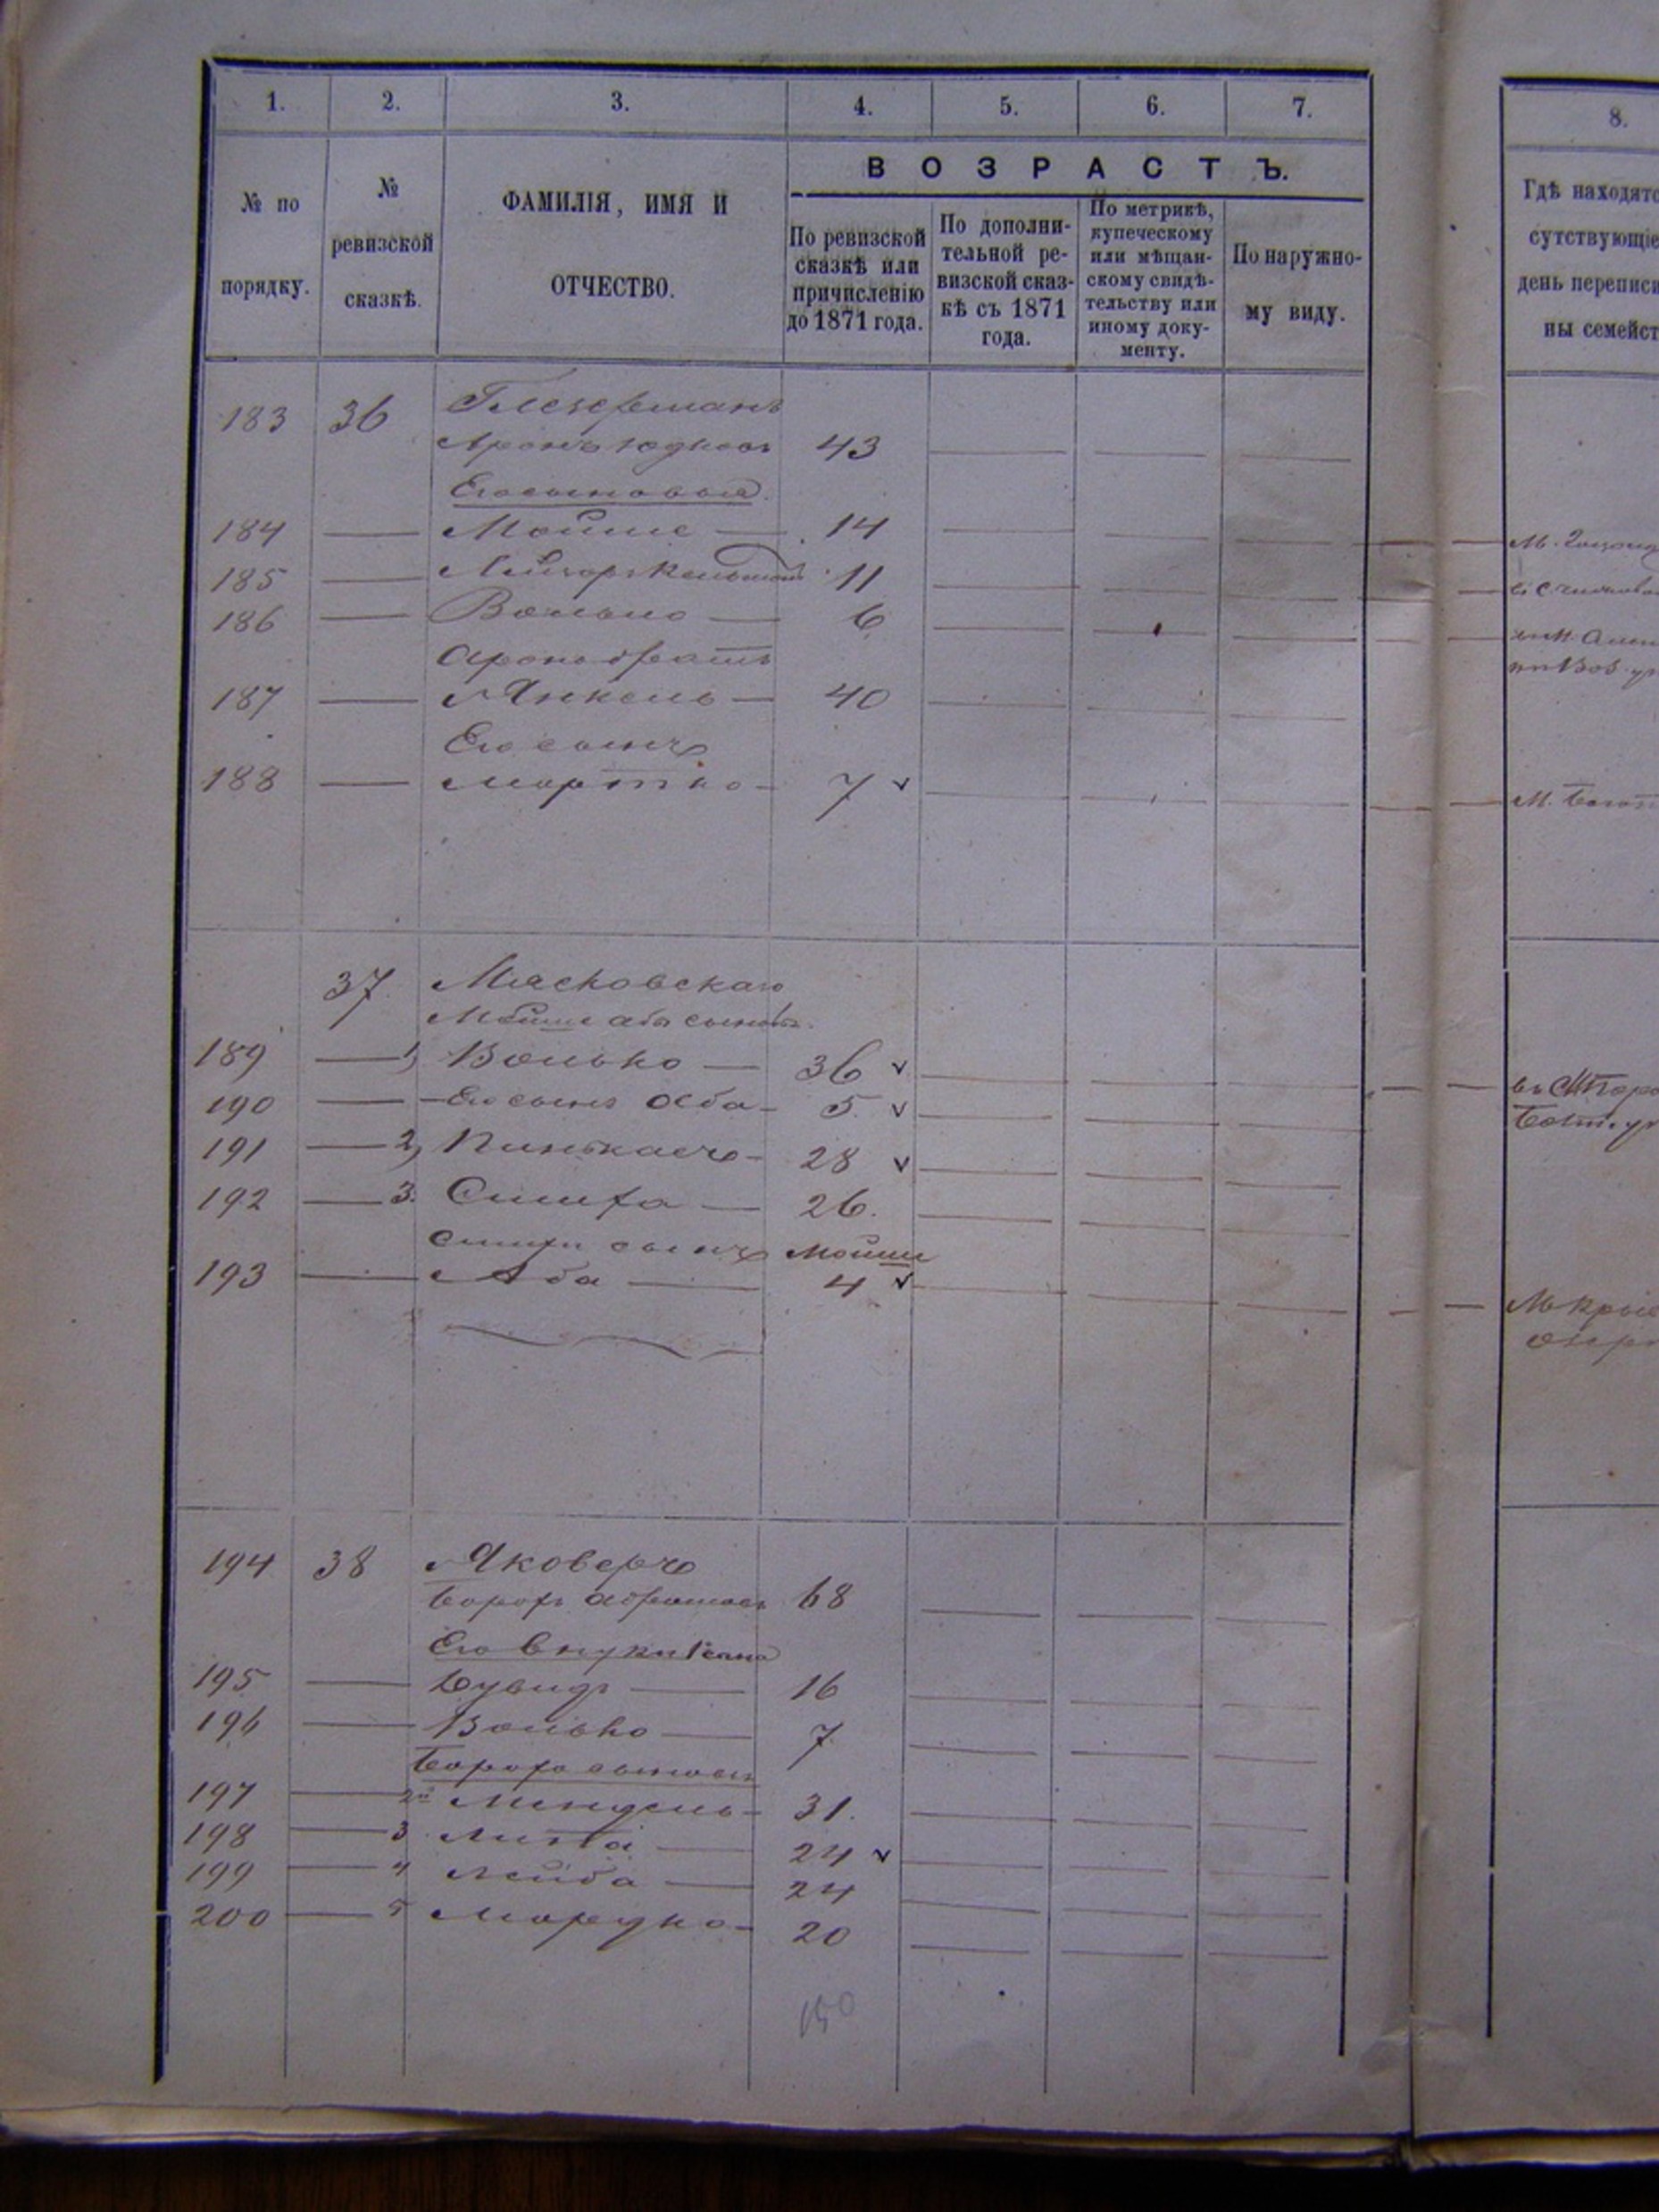 1. 2. 3. 4. 5. 6. 7.
8.
№ по порядку.
№ ревизской сказкѣ.
ФАМИЛІЯ, ИМЯ И ОТЧЕСТВО.
ВОЗРАСТЪ.
По ревизской сказкѣ или причисленію до 1871 года.
По дополнительной ревизской сказкѣ съ 1871 года.
По метрикѣ, купеческому или мѣщанскому свидѣтельству или иному документу.
По наружному виду.
Гдѣ находятс
сутствующіе
день переписи
ны семейст
183 36 Глезерманъ
Аронъ Юдковъ 43
Его сыновья
184 Мойше 14
185 11
186 Волько 6
Арона братъ
187 Янкель 40
Его сынъ
188 Мортко 7
М.
37 Мясковскаго
Мойше Абы сыновья
189 1) Волько 36
190 Его сынъ Аба 5
191 2) Пинькасъ 28
192 3. Симха 26.
Симхи сынъ Мойше
193 Аба 4
194 38 Яковеръ
Борохъ Абрамовъ 68
Его внуки
195 Дувидъ 16
196 Волько 7
Бороха сыновья
197 2й Мендель 31.
198 3 Липа 24
199 4 Лейба 24
200 5 Мордко 20
150